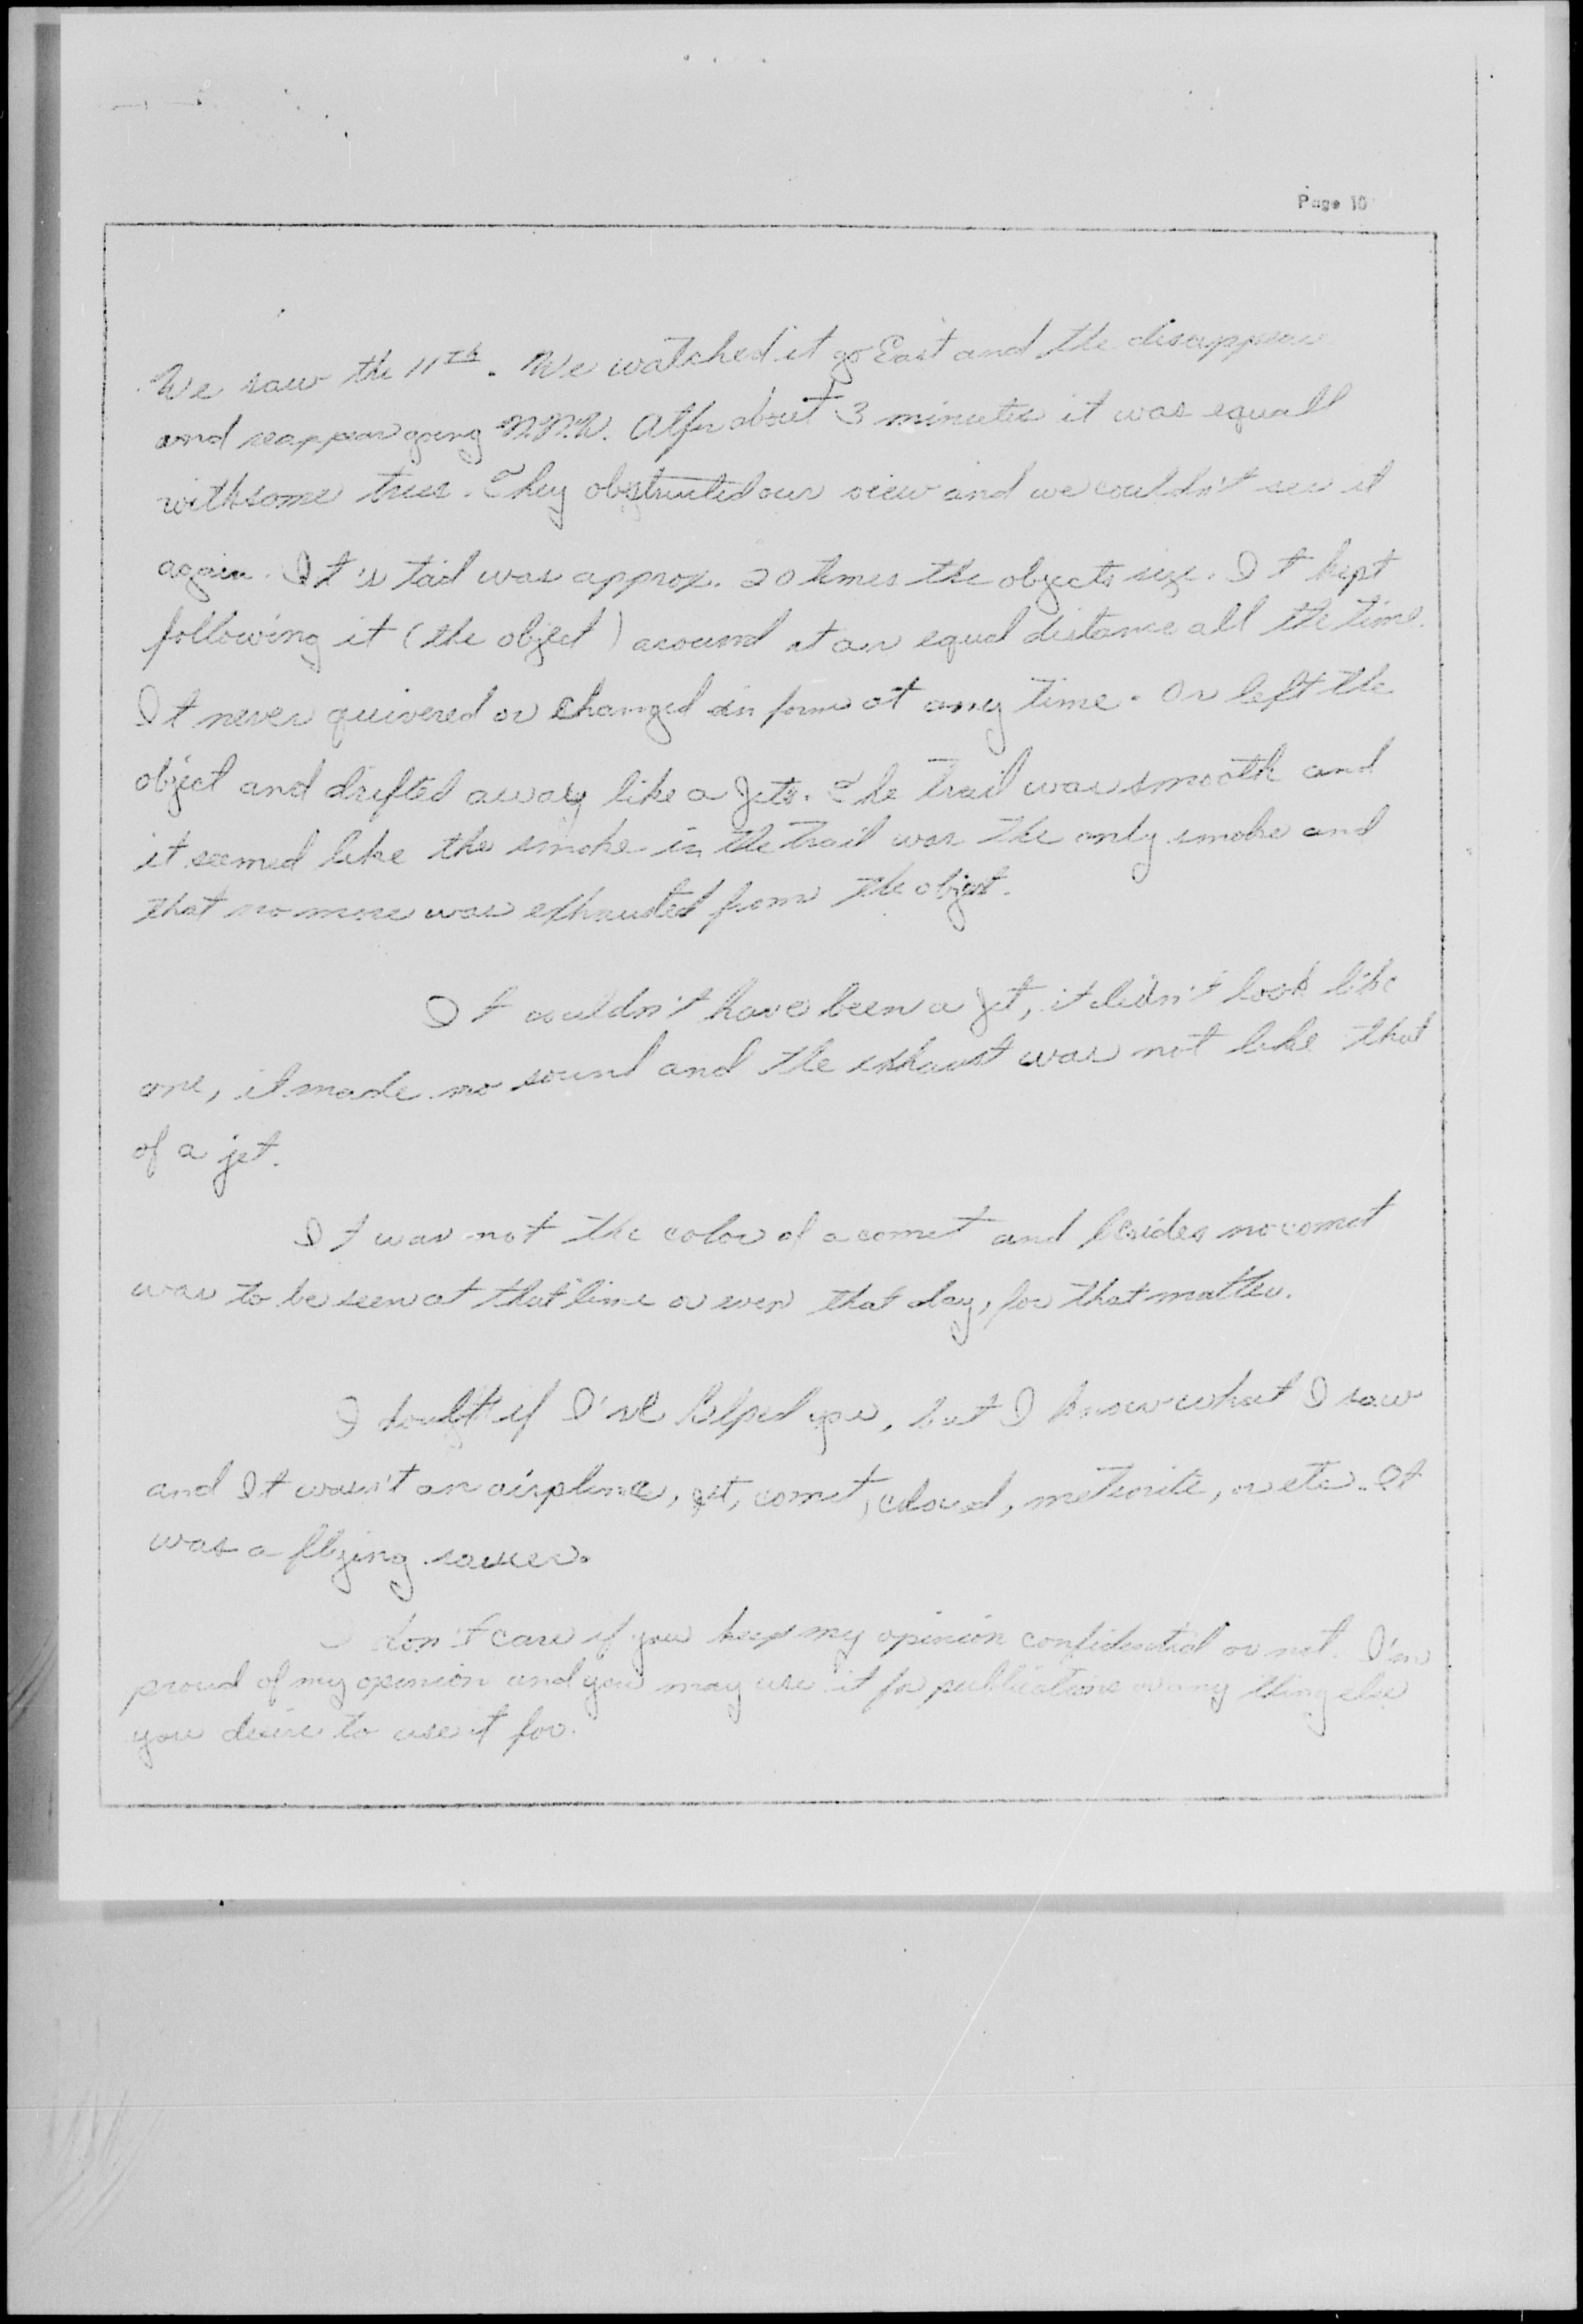 Page 10
We saw the 11th. We watched it go East and the disappear
and reappear going N.N.W. After about 3 minutes it was equall
with some trees. They obstructed our view and we couldn't see it
again. It's tail was approx. 20 times the objects size. It kept
following it (the object) around at an equal distance all the time.
It never quivered or changed in form at any time. Or left the
object and drifted away like a Jets. The trail was smooth and
it seemed like the smoke in the trail was the only smoke and
that no more was exhausted from the object.
It couldn't have been a Jet, it didn't look like
one, it made no sound and the exhaust was not like that
of a jet.
It was not the color of a comet and besides no comet
was to be seen at that time or even that day, for that matter.
I doubt if I've helped you, but I know what I saw
and It wasn't an airplane, jet, comet, cloud, meteorite, or etc. It
was a flying saucer.
I don't care if you keep my opinion confidential or not. I'm
proud of my opinion and you may use it for publications or any thing else
you desire to use it for.